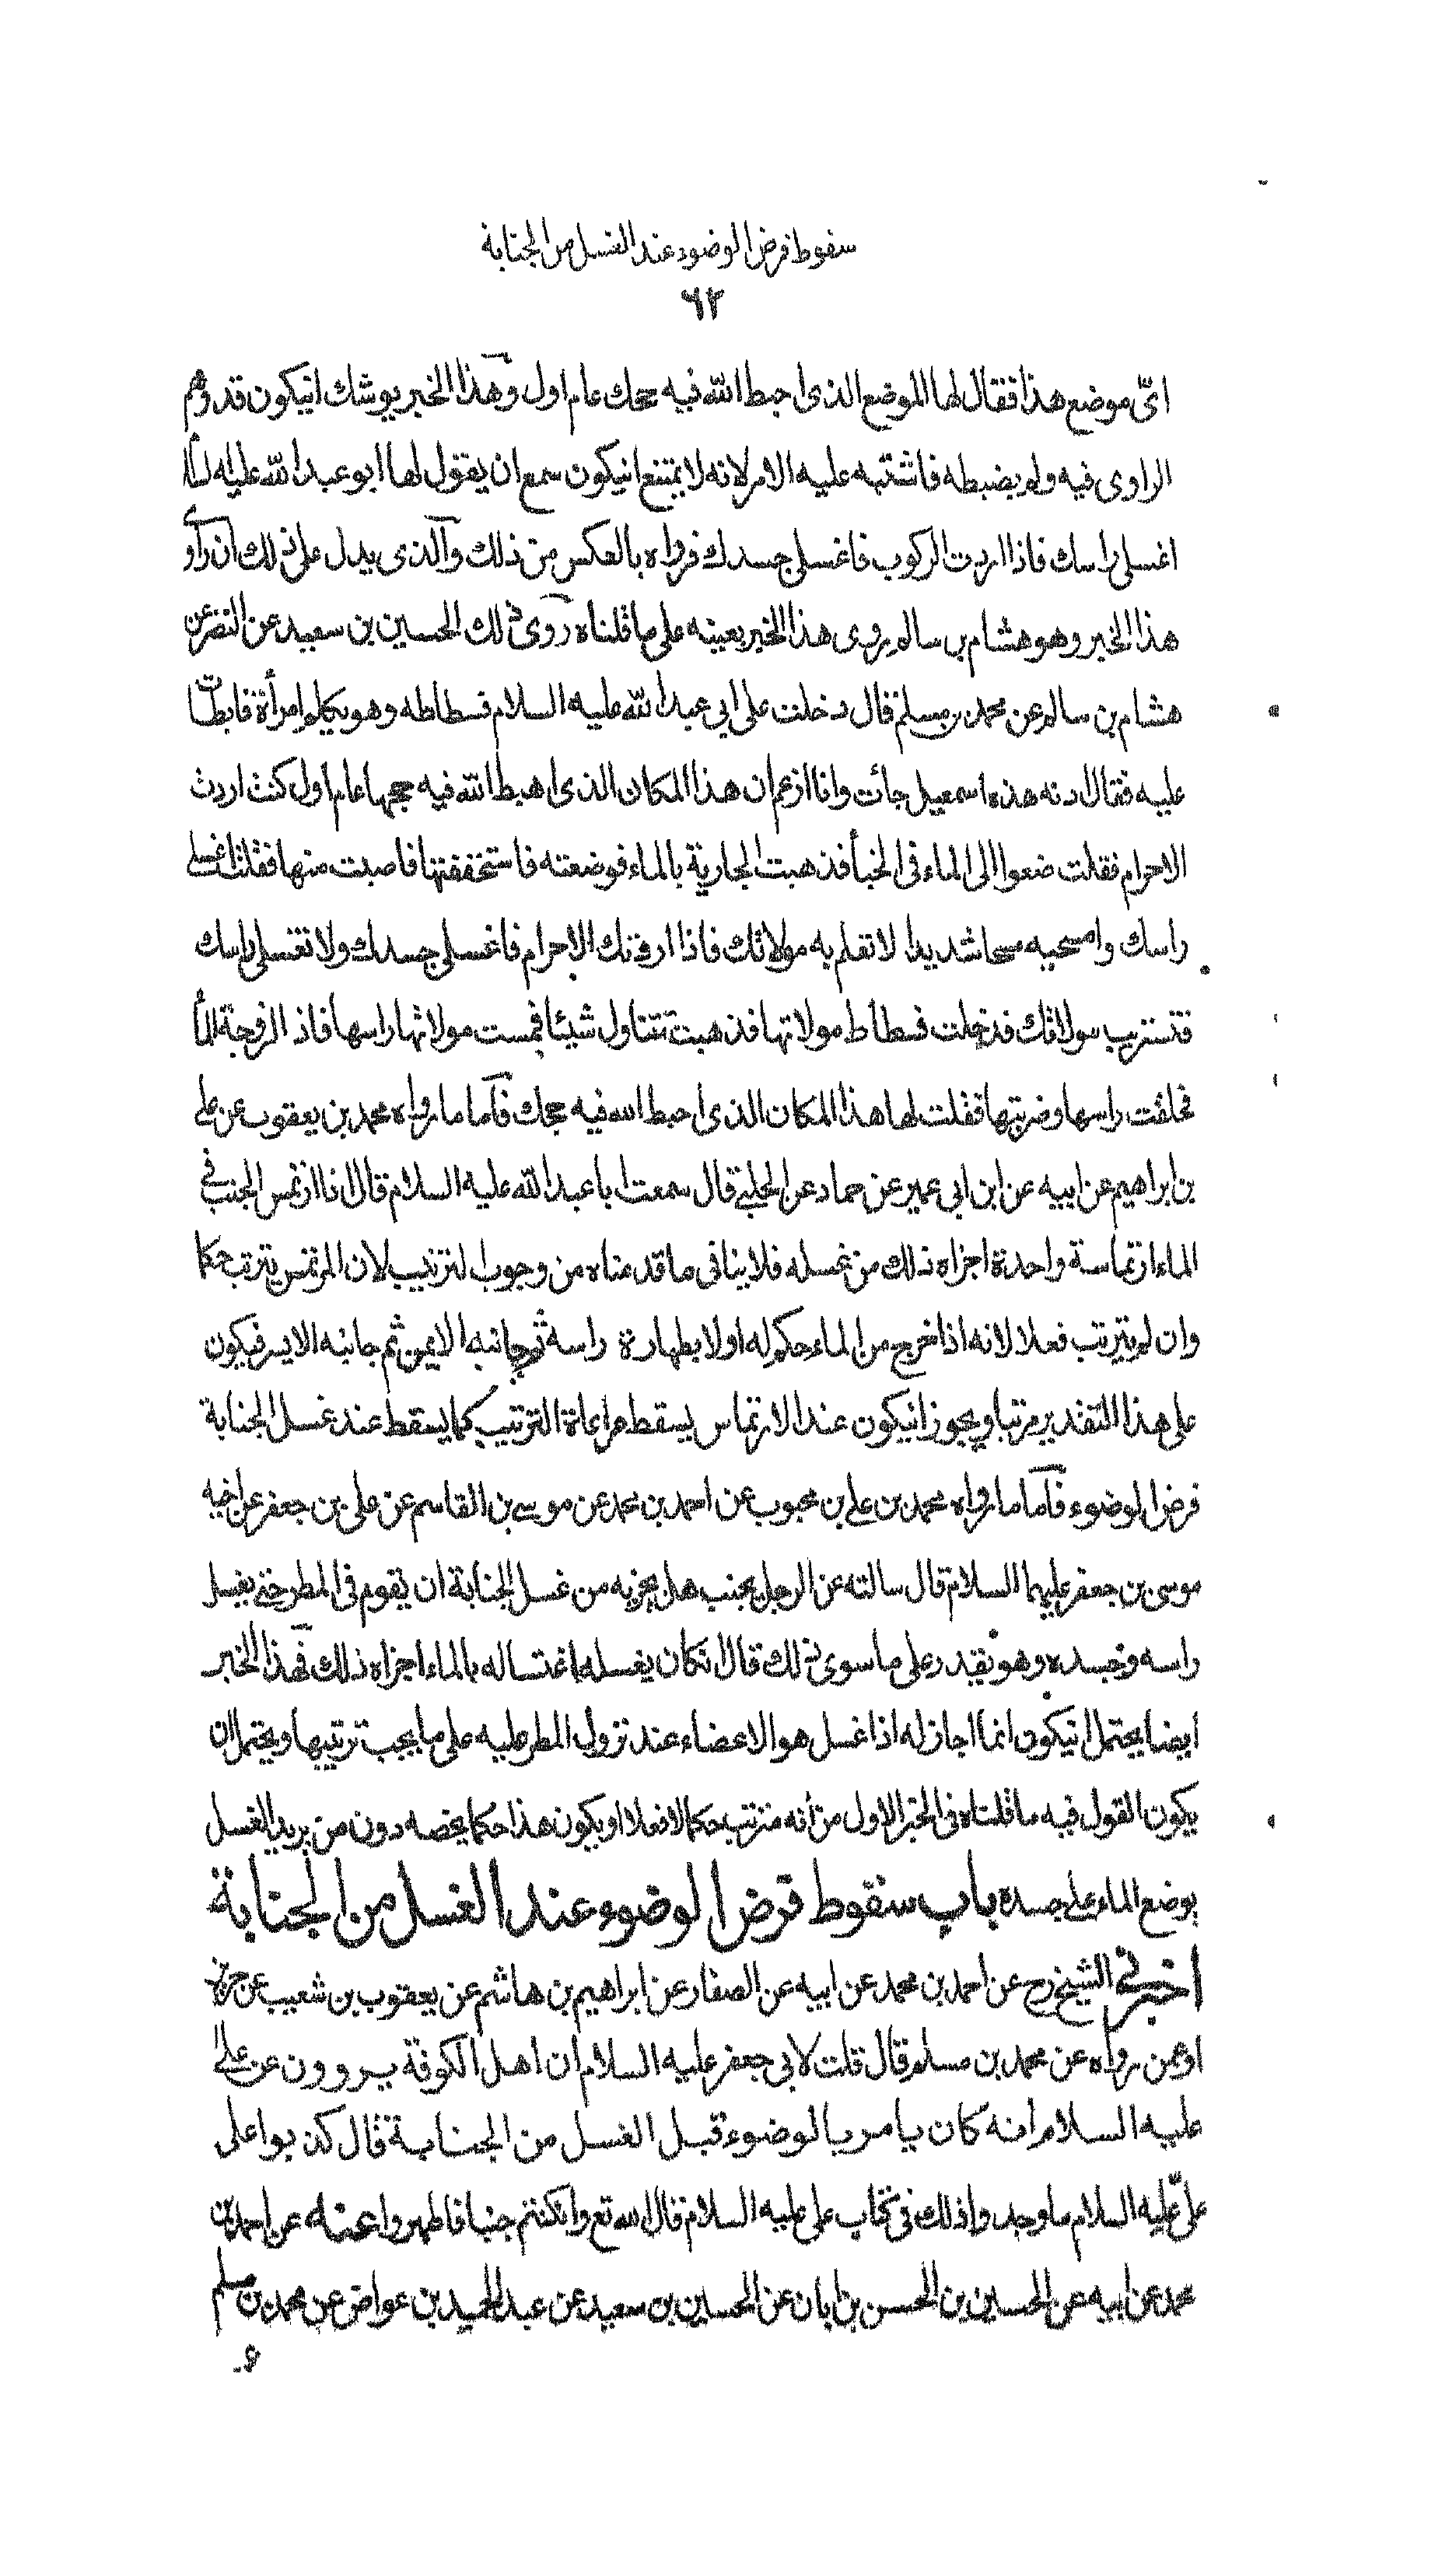 سقوط فرض الوضوء عند الغسل من الجنابة
٦٢
اىّ موضع هذا فقال لها الموضع الذى احبط الله فيه حجك عام اول وهذا الخبر يوشك انيكون قد وهم
الراوى فيه ولم يضبطه فاشتبه عليه الامر لانه لا يمتنع انيكون سمع ان يقول لها ابو عبد الله عليه السلا
اغسلى راسك فاذا اردت الركوب فاغسلى جسدك فرواه بالعكس من ذلك والذى يدل على ذلك ان راوى
هذا الخبر وهو هشام بن سالم روى هذا الخبر بعينه على ما قلناه روى ذلك الحسين بن سعيد عن النضر عن
هشام بن سالم عن محمد بن مسلم قال دخلت على ابى عبد الله عليه السلام فسطاطه وهو يكلم امرأة فابطات
عليه فقال ادنه هذه ام اسمعيل جائت وانا ازعم ان هذا المكان الذى اهبط الله فيه حجها عام اول كنت اردت
الاحرام فقلت ضعوا الى الماء فى الخبأ فذهبت الجارية بالماء فوضعته فاستخففتها فاصبت منها فقلت اغسلى
راسك وامسحيه مسحا شديدا لا تعلم به مولاتك فاذا اردت الاحرام فاغسلى جسدك ولا تغسلى راسك
فتستريب مولاتك فدخلت فسطاط مولاتها فذهبت تتناول شيئا فمست مولاتها راسها فاذا لزوجة الماء
فحلقت راسها وضربتها فقلت لها هذا المكان الذى احبط الله فيه حجك فاما ما رواه محمد بن يعقوب عن على
بن ابراهيم عن ابيه عن ابن ابى عمير عن حماد عن الحلبى قال سمعت ابا عبد الله عليه السلام قال اذا ارتمس الجنب فى
الماء ارتماسة واحدة اجزاه ذلك من غسله فلا ينافى ما قدمناه من وجوب الترتيب لان المرتمس يترتب حكما
وان لم يترتب فعلا لانه اذا خرج من الماء حكم له اولا بطهارة راسه ثم جانبه الايمن ثم جانبه الايسر فيكون
على هذا التقدير مرتبا ويجوز انيكون عند الارتماس يسقط مراعاة الترتيب كما يسقط عند غسل الجنابة
فرض الوضوء فاما ما رواه محمد بن على بن محبوب عن احمد بن محمد عن موسى بن القاسم عن على بن جعفر عن اخيه
موسى بن جعفر عليهما السلام قال سالته عن الرجل يجنب هل يجزيه من غسل الجنابة ان يقوم فى المطر حتى يغسل
راسه وجسده وهو يقدر على ما سوى ذلك قال انكان يغسله اغتساله بالماء اجزاه ذلك فهذا الخبر
ايضا يحتمل انيكون انما اجاز له اذا غسل هو الاعضاء عند نزول المطر عليه على ما يجب ترتيبها ويحتمل ان
يكون القول فيه ما قلناه فى الخبر الاول من أنه مترتب حكما لا فعلا او يكون هذا حكما يخصه دون من يريد الغسل
بوضع الماء على جسده باب سقوط فرض الوضوء عند الغسل من الجنابة
اخبرنى الشيخ رح عن احمد بن محمد عن ابيه عن الصفار عن ابراهيم بن هاشم عن يعقوب بن شعيب عن حريز
او عمن رواه عن محمد بن مسلم قال قلت لابى جعفر عليه السلام ان اهل الكوفة يروون عن على
عليه السلام انه كان يامر بالوضوء قبل الغسل من الجنابة قال كذبوا على
علىّ عليه السلام ما وجدوا ذلك فى كتاب على عليه السلام قال الله تع وانكنتم جنبا فاطهروا وعنه عن احمد بن
محمد عن ابيه عن الحسين بن الحسن بن ابان عن الحسين بن سعيد عن عبد الحميد بن عواض عن محمد بن مسلم